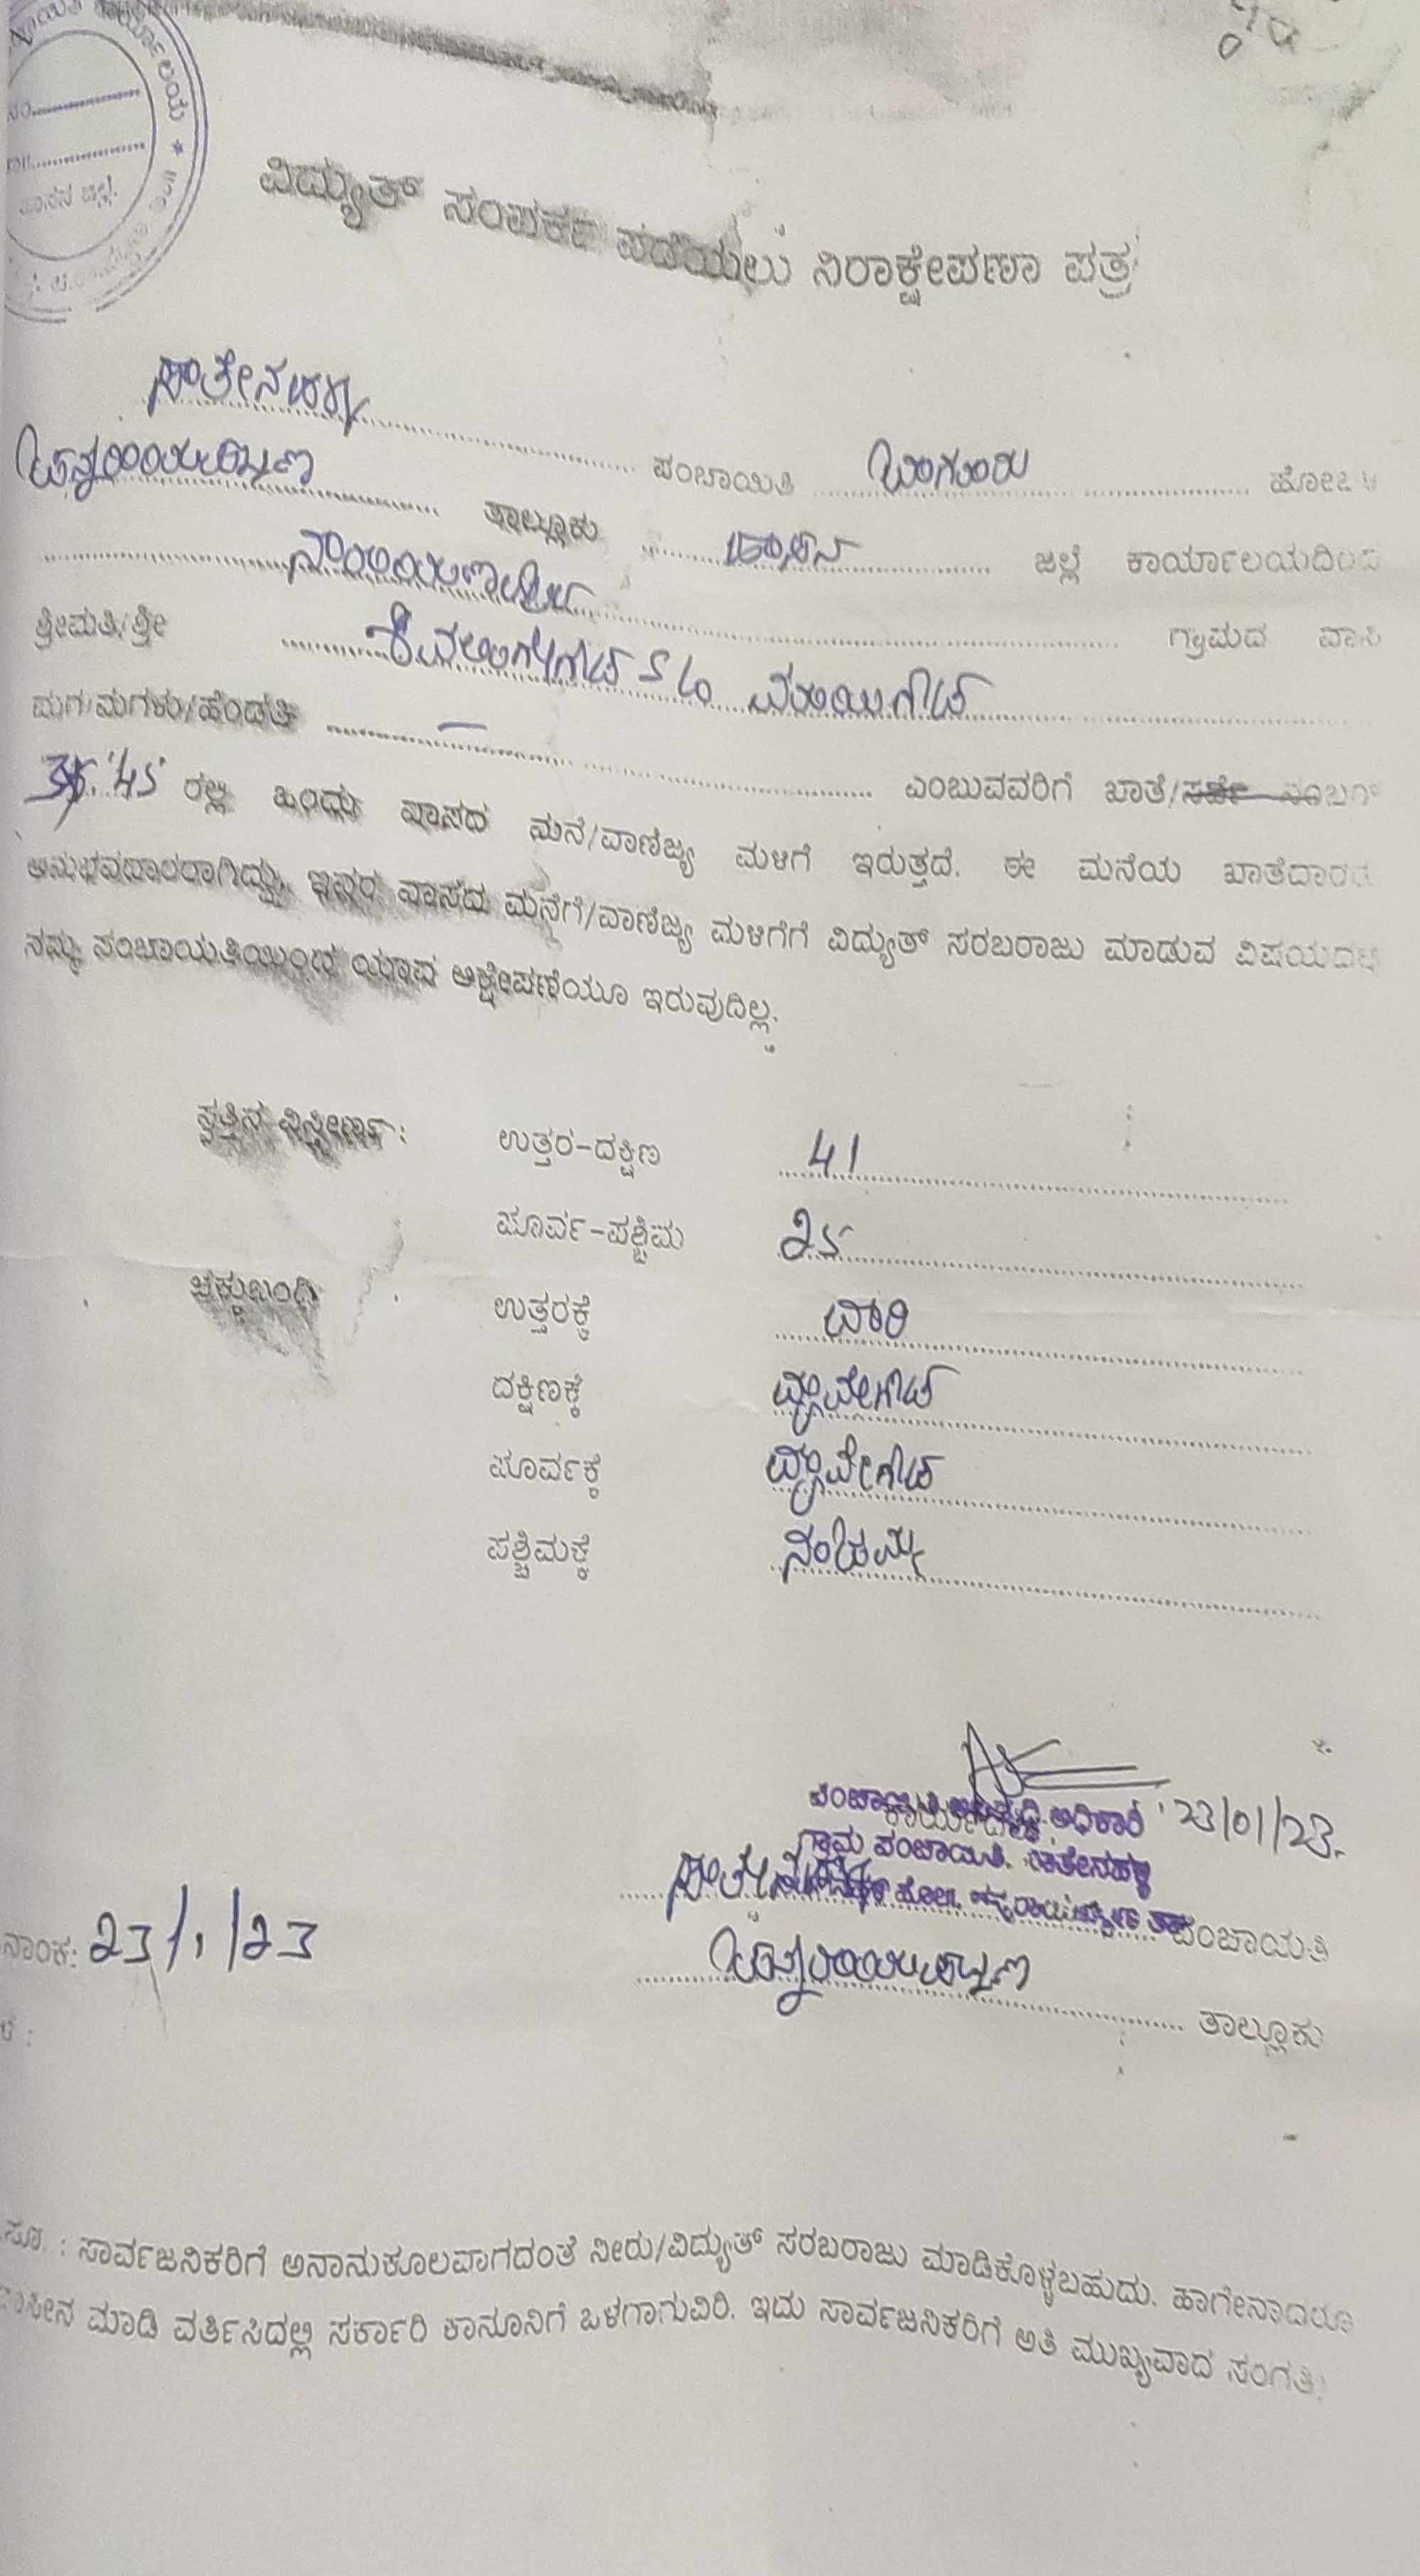 ಕಾರ್ಯಾಲಯ *
ಹಾಸನ ಜಿಲ್ಲೆ.
ವಿದ್ಯುತ್ ಸಂಪರ್ಕ ಪಡೆಯಲು ನಿರಾಕ್ಷೇಪಣಾ ಪತ್ರ
ಸಾತೇನಹಳ್ಳಿ ಪಂಚಾಯಿತಿ ಬಾಗೂರು ಹೋಬಳಿ
ಚನ್ನರಾಯಪಟ್ಟಣ ತಾಲ್ಲೂಕು ಹಾಸನ ಜಿಲ್ಲೆ ಕಾರ್ಯಾಲಯದಿಂದ
ಗ್ರಾಮದ ವಾಸಿ
ಶ್ರೀಮತಿ/ಶ್ರೀ S/o
ಮಗ/ಮಗಳು/ಹೆಂಡತಿ — ಎಂಬುವವರಿಗೆ ಖಾತೆ/ಸರ್ವೆ ನಂಬರ್
45 ರಲ್ಲಿ ಹಿಂದು ವಾಸದ ಮನೆ/ವಾಣಿಜ್ಯ ಮಳಿಗೆ ಇರುತ್ತದೆ. ಈ ಮನೆಯ ಖಾತೆದಾರರು
ಅನುಭವದಾರರಾಗಿದ್ದು, ಇವರ ವಾಸದ ಮನೆಗೆ/ವಾಣಿಜ್ಯ ಮಳಿಗೆಗೆ ವಿದ್ಯುತ್ ಸರಬರಾಜು ಮಾಡುವ ವಿಷಯದಲ್ಲಿ
ನಮ್ಮ ಪಂಚಾಯತಿಯಿಂದ ಯಾವ ಆಕ್ಷೇಪಣೆಯೂ ಇರುವುದಿಲ್ಲ.
ಸ್ವತ್ತಿನ ವಿಸ್ತೀರ್ಣ : ಉತ್ತರ-ದಕ್ಷಿಣ 41
ಪೂರ್ವ-ಪಶ್ಚಿಮ 25
ಚಕ್ಕುಬಂಧಿ : ಉತ್ತರಕ್ಕೆ ದಾರಿ
ದಕ್ಷಿಣಕ್ಕೆ
ಪೂರ್ವಕ್ಕೆ
ಪಶ್ಚಿಮಕ್ಕೆ ನಂಜಮ್ಮ
ಪಂಚಾಯಿತಿ ಅಭಿವೃದ್ಧಿ ಅಧಿಕಾರಿ 23/01/23.
ಗ್ರಾಮ ಪಂಚಾಯಿತಿ. ಸಾತೇನಹಳ್ಳಿ
ಸಾತೇನಹಳ್ಳಿ ಪಂಚಾಯತಿ
ನಾಂಕ: 23/1/23
ಚನ್ನರಾಯಪಟ್ಟಣ ತಾಲ್ಲೂಕು
ಸೂ. : ಸಾರ್ವಜನಿಕರಿಗೆ ಅನಾನುಕೂಲವಾಗದಂತೆ ನೀರು/ವಿದ್ಯುತ್ ಸರಬರಾಜು ಮಾಡಿಕೊಳ್ಳಬಹುದು. ಹಾಗೇನಾದರೂ
ಮಾಡಿ ವರ್ತಿಸಿದಲ್ಲಿ ಸರ್ಕಾರಿ ಕಾನೂನಿಗೆ ಒಳಗಾಗುವಿರಿ. ಇದು ಸಾರ್ವಜನಿಕರಿಗೆ ಅತಿ ಮುಖ್ಯವಾದ ಸಂಗತಿ!